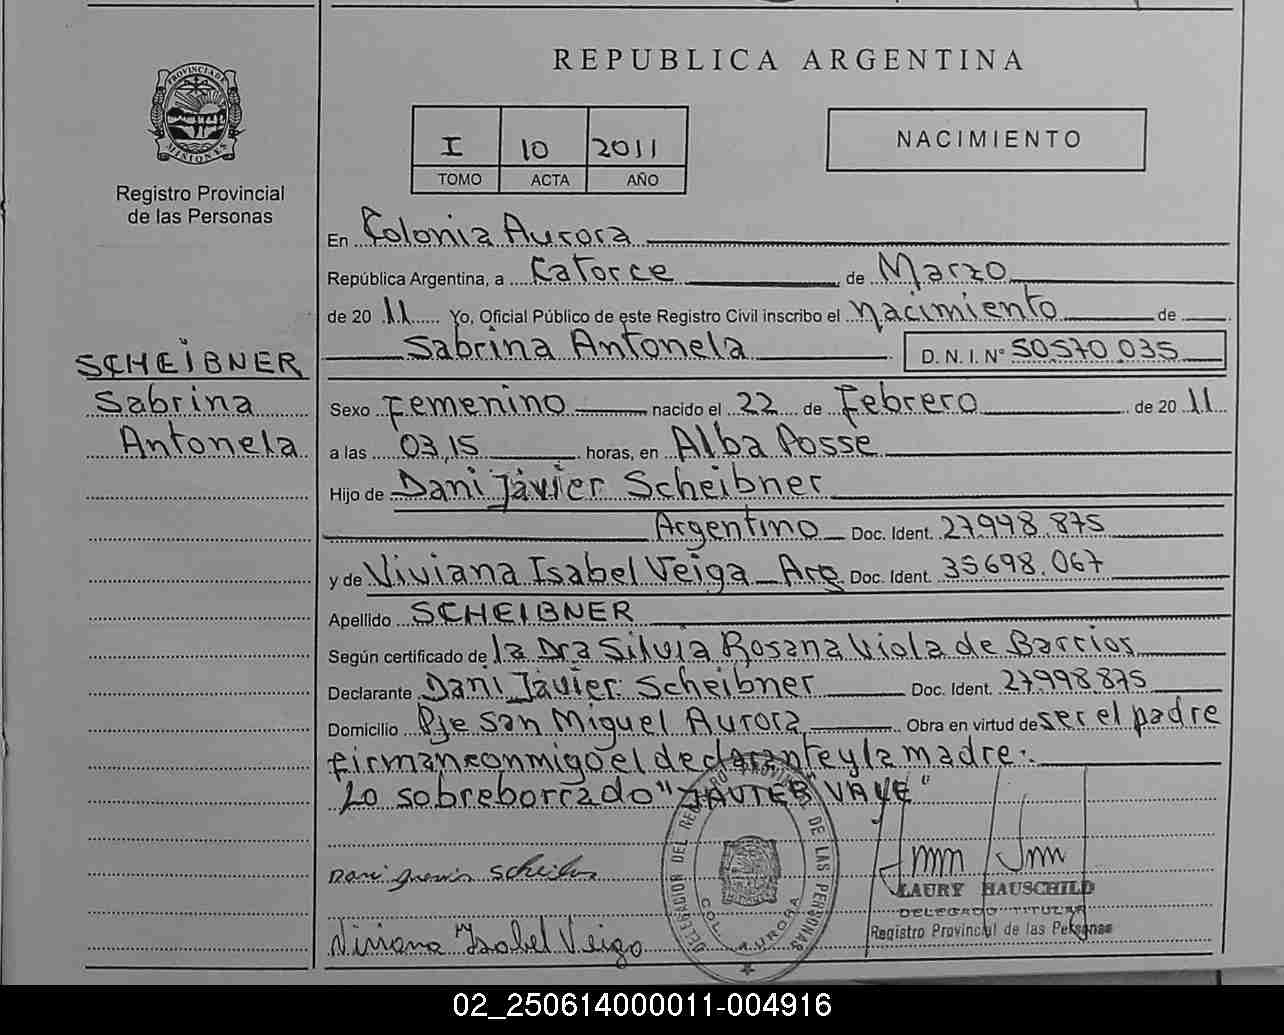 REPUBLICA ARGENTINA
PROVINCIA DE MISIONES
Registro Provincial
de las Personas
I 10 2011
TOMO ACTA AÑO
NACIMIENTO
En Colonia Aurora
República Argentina, a Catorce de Marzo
de 20 11 Yo, Oficial Público de este Registro Civil inscribo el nacimiento de
Sabrina Antonela D. N. I. N° 50.570.035
SCHEIBNER
Sabrina
Antonela
Sexo Femenino nacido el 22 de Febrero de 20 11
a las 03,15 horas, en Alba Posse
Hijo de Dani Javier Scheibner
Argentino Doc. Ident. 27.998.875
y de Viviana Isabel Veiga Arg Doc. Ident. 35.698.067
Apellido SCHEIBNER
Según certificado de la Dra Silvia Rosana Viola de Barrios
Declarante Dani Javier Scheibner Doc. Ident. 27.998.875
Domicilio Pje San Miguel Aurora Obra en virtud de ser el padre
firman conmigo el declarante y la madre:
Lo sobreborrado "JAVIER VALE"
DELEGACION DEL REGISTRO PROVINCIAL DE LAS PERSONAS
COL. AURORA
Dani Javier Scheibner
LAURY HAUSCHILD
DELEGADO TITULAR
Registro Provincial de las Personas
Viviana Isabel Veiga
02_250614000011-004916